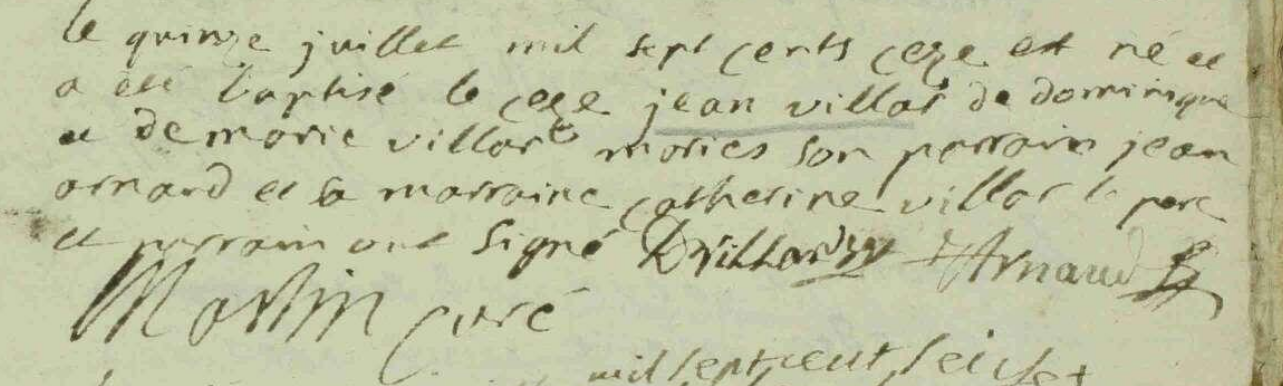 le quinze juillet mil sept cents ceze est né et
a été baptisé le ceze jean villar de dominique
et de marie villar mariés son parrain jean
arnaud et sa marraine catherine villar le pere
et parrain ont signé DVillar J Arnaud
Martin curé
mil sept cent seize et